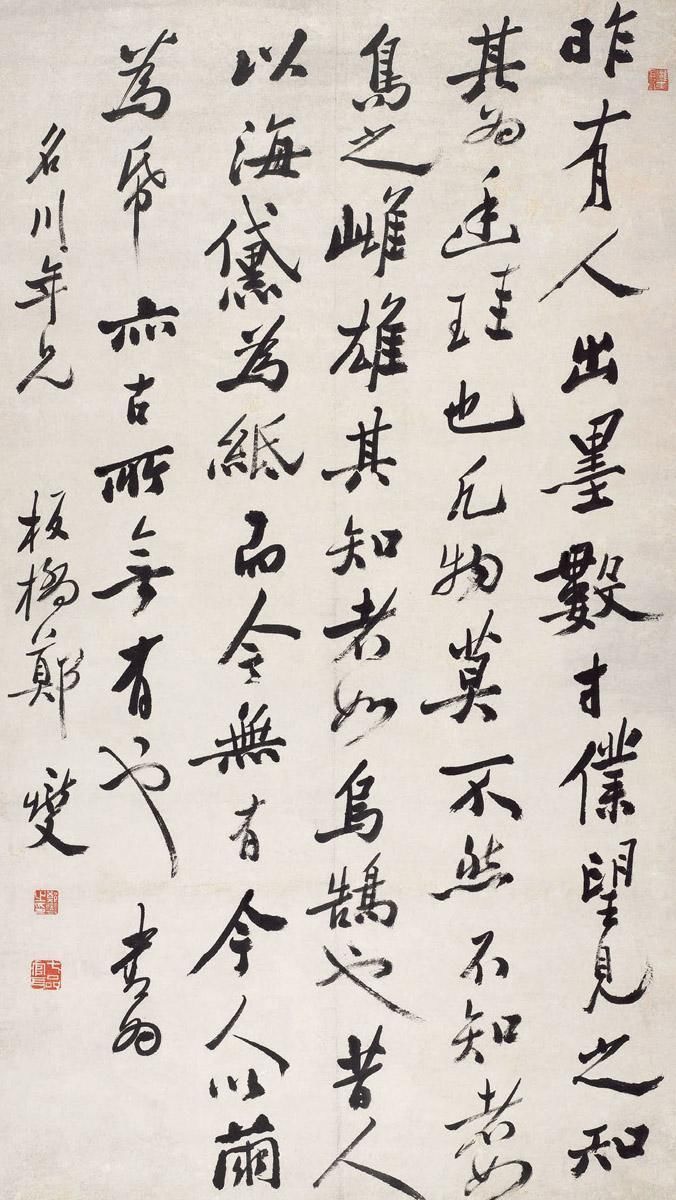 昨有人出墨數寸僕望見之知
其為廷珪也凡物莫不然不知者如
鳥之雌雄其知者如烏鵲也昔人
以海薹為紙而今無有今人以繭
為帋亦古所無有也 書為
名川年兄
板橋鄭燮